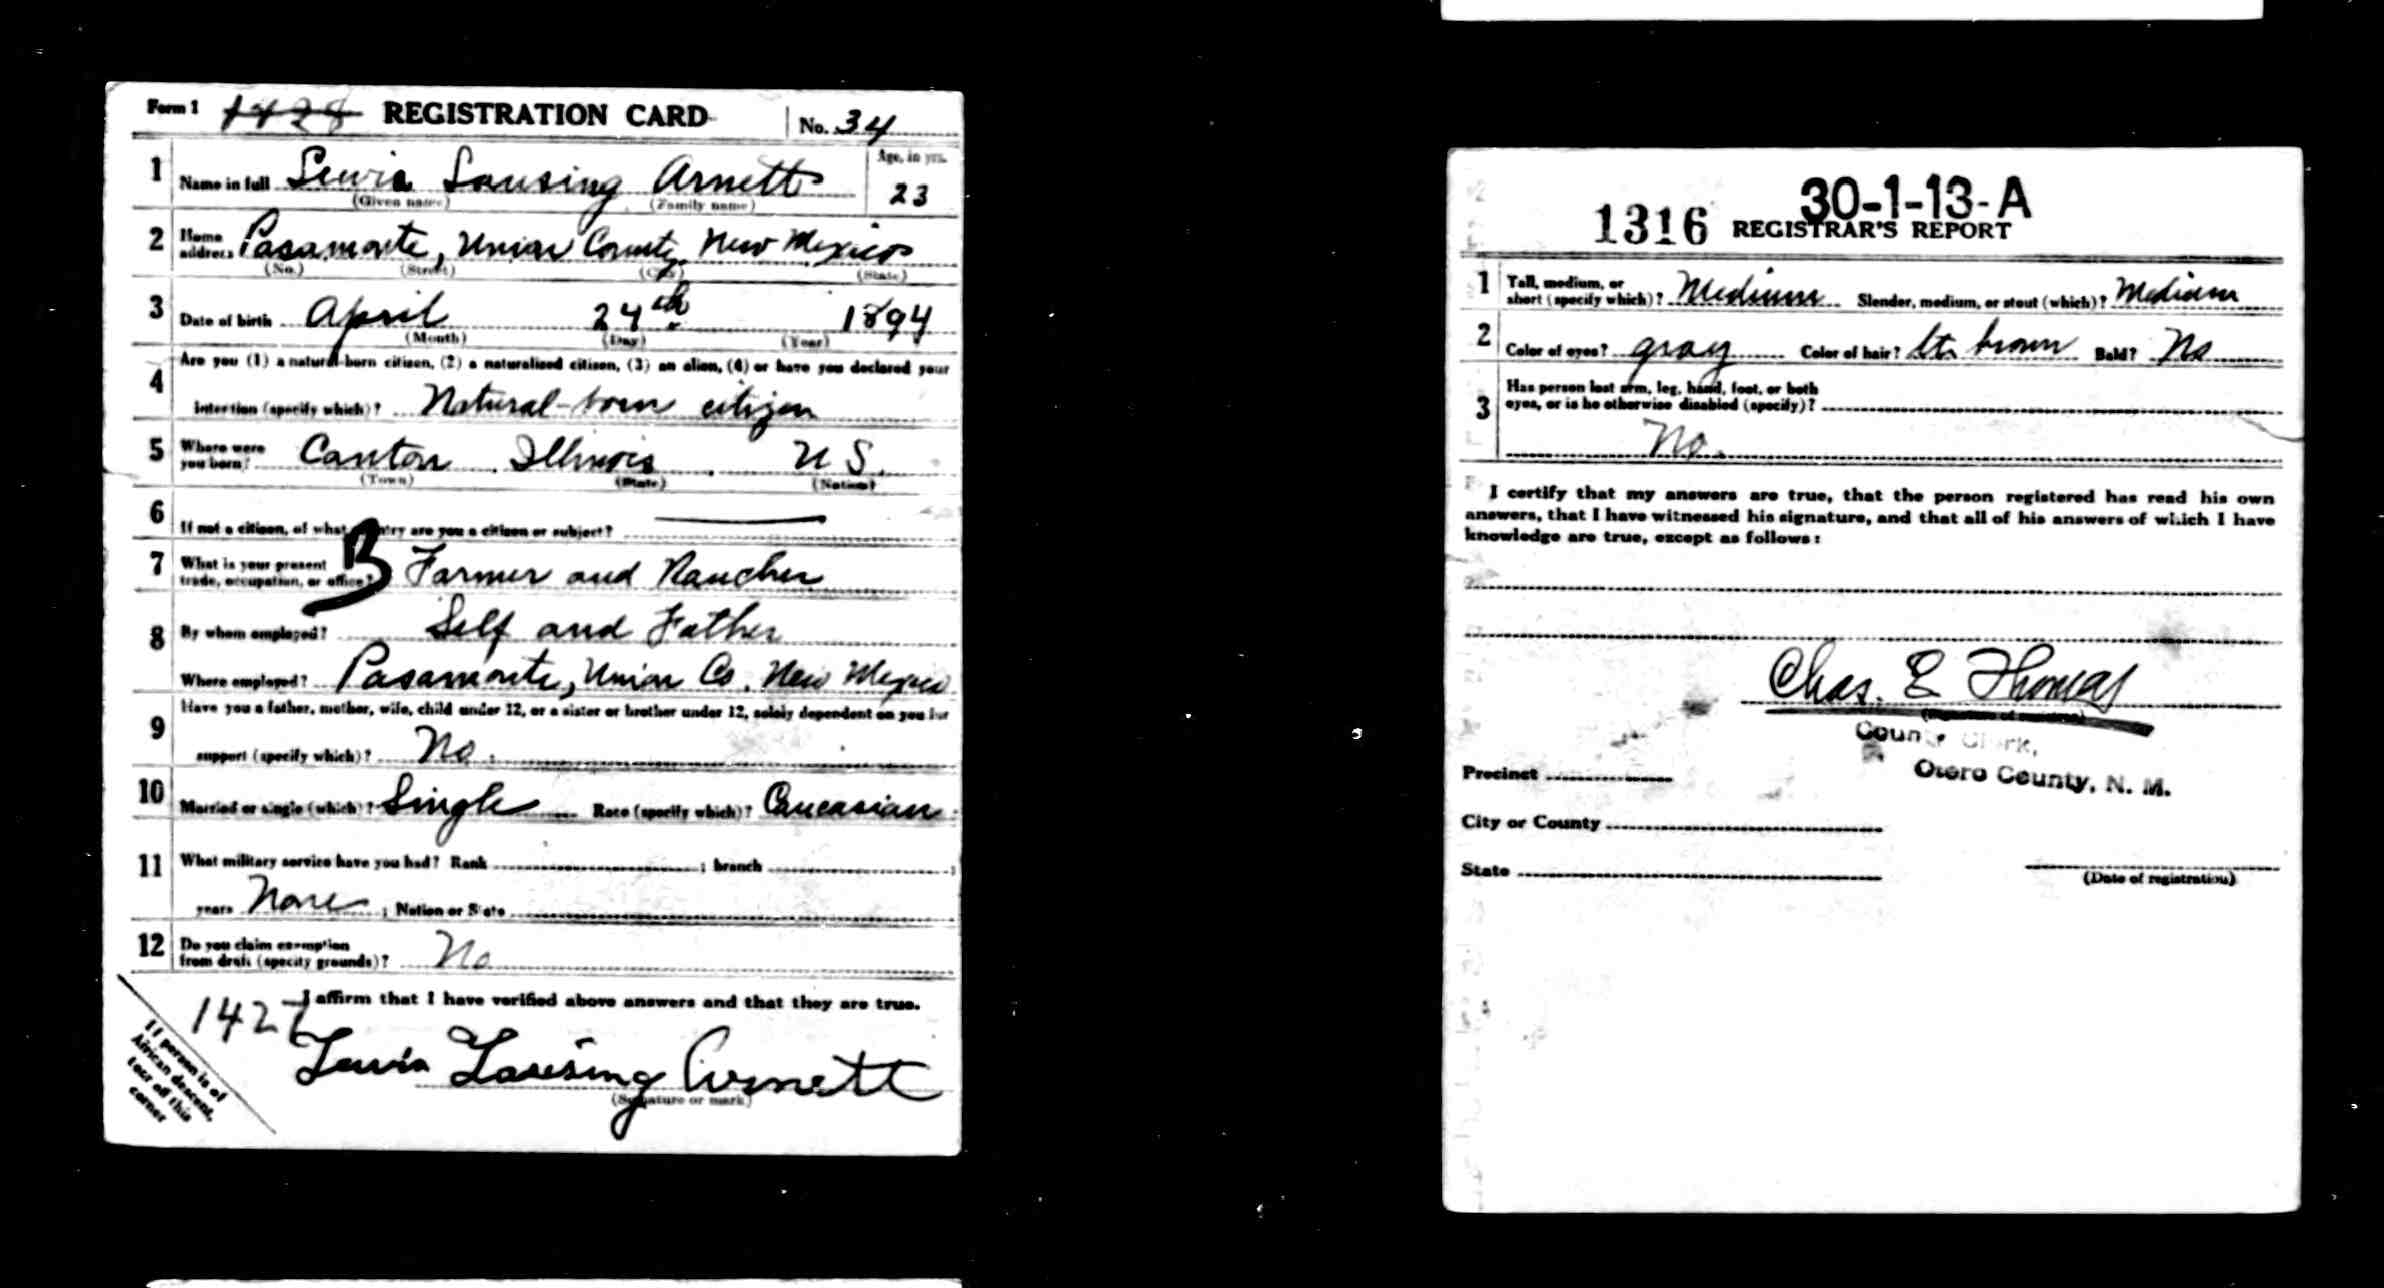 Form 1 1428 REGISTRATION CARD No. 34
1 Name in full Lewis Lansing Arnett Age, in yrs.
(Given name) (Family name) 23
2 Home address Pasamonte, Union County New Mexico
(No.) (Street) (City) (State)
3 Date of birth April 24th 1894
(Month) (Day) (Year)
4 Are you (1) a natural-born citizen, (2) a naturalized citizen, (3) an alien, (4) or have you declared your
intention (specify which)? Natural-born citizen
5 Where were you born? Canton Illinois U S.
(Town) (State) (Nation)
6 If not a citizen, of what country are you a citizen or subject?
B
7 What is your present trade, occupation, or office? Farmer and Rancher
8 By whom employed? Self and Father
Where employed? Pasamonte, Union Co. New Mexico
9 Have you a father, mother, wife, child under 12, or a sister or brother under 12, solely dependent on you for
support (specify which)? No.
10 Married or single (which)? Single Race (specify which)? Caucasian
11 What military service have you had? Rank ; branch ;
years None ; Nation or State
12 Do you claim exemption
from draft (specify grounds)? No
I affirm that I have verified above answers and that they are true.
1427
Lewis Lansing Arnett
(Signature or mark)
If person is of
African descent,
tear off this
corner
30-1-13-A
1316 REGISTRAR'S REPORT
1 Tall, medium, or
short (specify which)? Medium Slender, medium, or stout (which)? Medium
2 Color of eyes? gray Color of hair? Lt. brown Bald? No
3 Has person lost arm, leg, hand, foot, or both
eyes, or is he otherwise disabled (specify)?
No.
I certify that my answers are true, that the person registered has read his own
answers, that I have witnessed his signature, and that all of his answers of which I have
knowledge are true, except as follows:
Chas. E Thomas
(Signature of registrar)
County Clerk,
Otero County, N. M.
Precinct
City or County
State
(Date of registration)